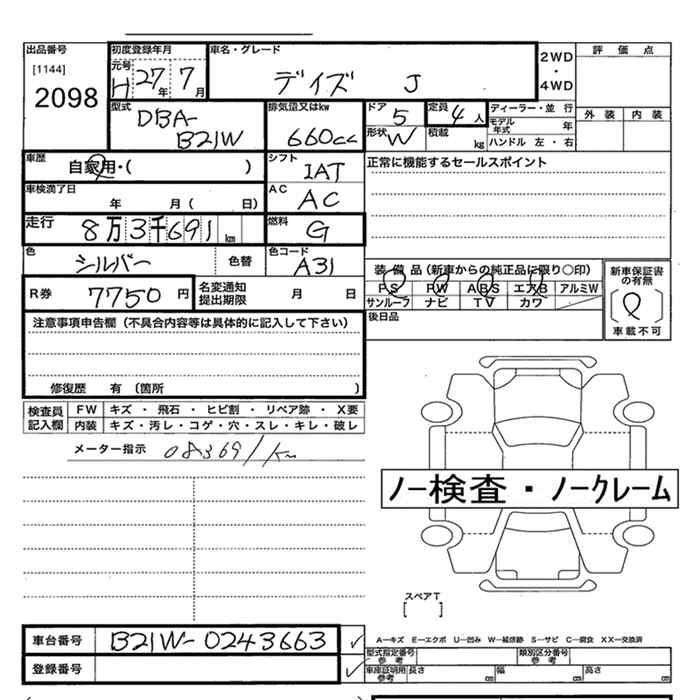 出品番号
[1144]
2098
初度登録年月
元号
H 27年 7月
車名・グレード
デイズ J
2WD
・
4WD
評価点
外装 内装
型式
DBA-
B21W
排気量又はkw
660cc
ドア 5
形状 W
定員 4人
積載 kg
ディーラー・並行
モデル年式 年
ハンドル 左・右
車歴
自家用・( )
シフト
IAT
正常に機能するセールスポイント
車検満了日
年 月( 日)
AC
AC
走行
8万3千691km
燃料
G
色
シルバー
色替
色コード
A31
装備品(新車からの純正品に限り○印)
PS PW ABS エアB アルミW
サンルーフ ナビ TV カワ
新車保証書
の有無
車載不可
R券
7750円
名変通知
提出期限
月 日
後日品
注意事項申告欄(不具合内容等は具体的に記入して下さい)
修復歴 有(箇所 )
検査員
記入欄
FW キズ・飛石・ヒビ割・リペア跡・X要
内装 キズ・汚レ・コゲ・穴・スレ・キレ・破レ
メーター指示 083691km
ノー検査・ノークレーム
スペアT
[ ]
車台番号 B21W-0243663
登録番号
A―キズ E―エクボ U―凹み W―補修跡 S―サビ C―腐食 XX―交換済
型式指定番号
参考
類別区分番号
参考
車庫証明用
参考
長さ cm 幅 cm 高さ cm